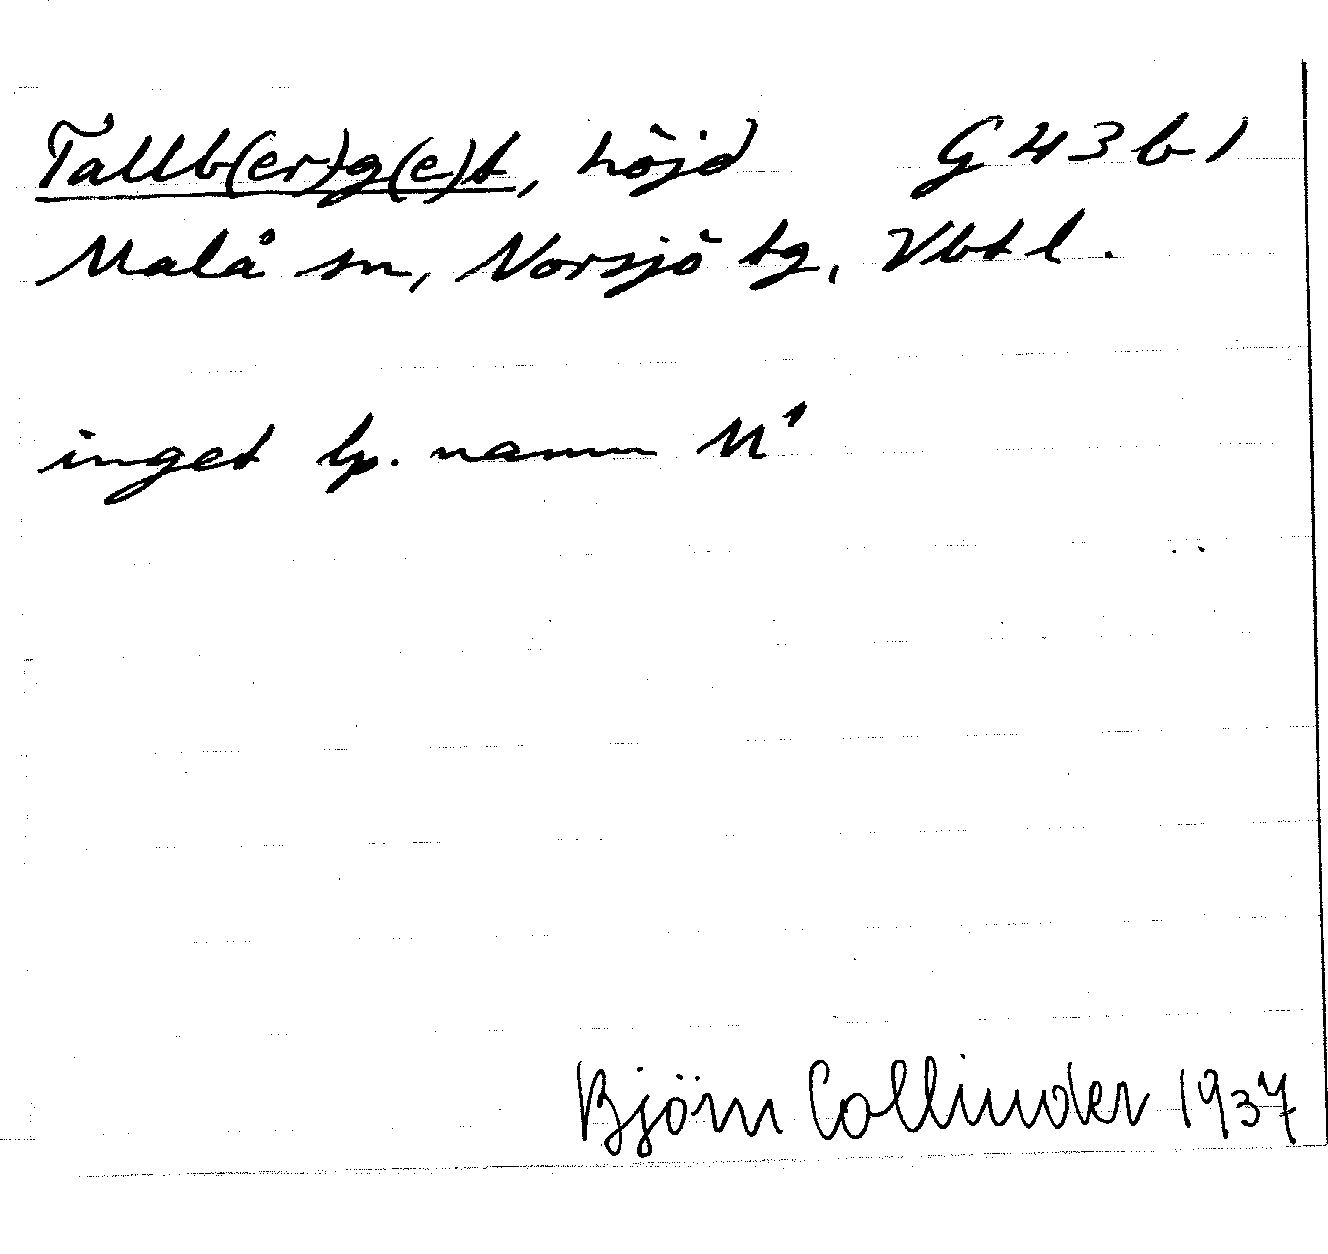 Tallb(er)g(e)t, höjd G 43 b 1
Malå sn, Norsjö tg, Vbtl.
inget lp. namn M¹
Björn Collinder 1937